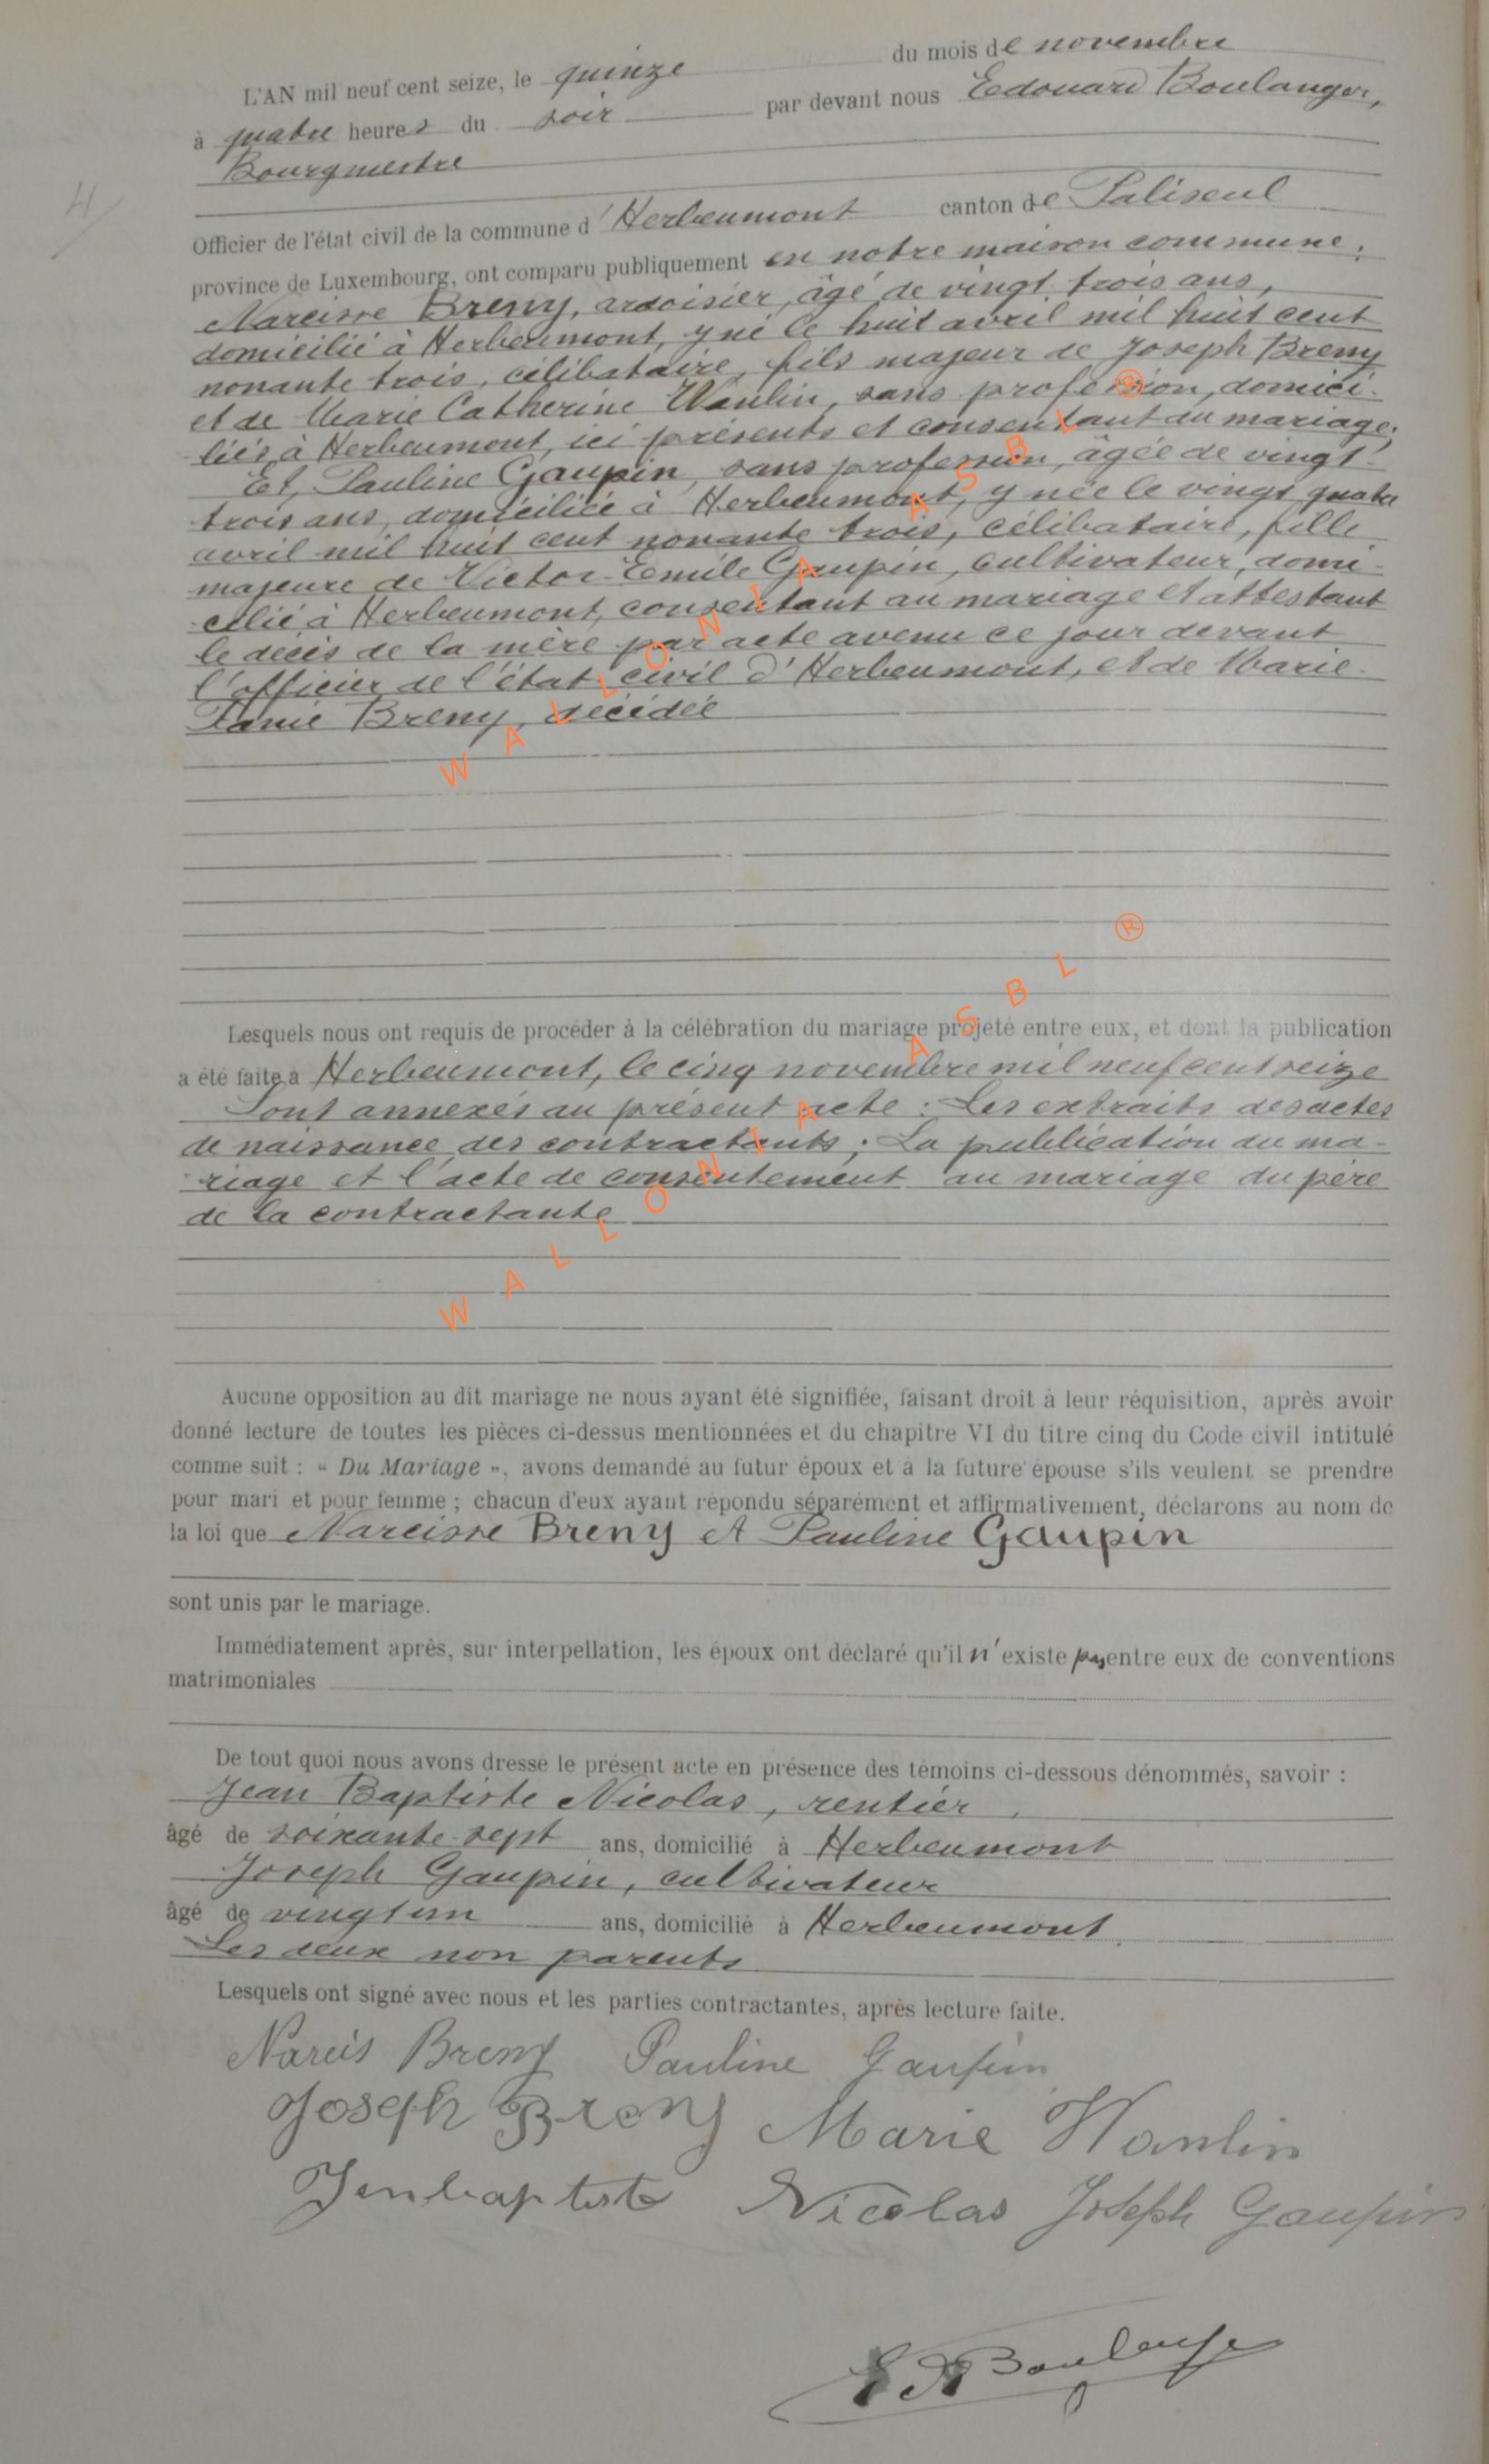 L'AN mil neuf cent seize, le quinze du mois de novembre
à quatre heures du soir par devant nous Edouard Boulanger,
Bourgmestre
4/
Officier de l'état civil de la commune d'Herbeumont canton de Paliseul
province de Luxembourg, ont comparu publiquement en notre maison commune;
Narcisse Breny, ardoisier, âgé de vingt trois ans,
domicilié à Herbeumont, y né le huit avril mil huit cent
nonante trois, célibataire, fils majeur de Joseph Breny
et de Marie Catherine Wanlin, sans profession, domici-
liés à Herbeumont, ici présents et consentant au mariage;
Et, Pauline Gaupin, sans profession, âgée de vingt-
trois ans, domiciliée à Herbeumont, y née le vingt quatre
avril mil huit cent nonante trois, célibataire, fille
majeure de Victor-Emile Gaupin, cultivateur, domi-
cilié à Herbeumont, consentant au mariage et attestant
le décès de la mère par acte avenu ce jour devant
l'officier de l'état civil d'Herbeumont, et de Marie-
Fanie Breny, décédée
WALLONIA ASBL ®
Lesquels nous ont requis de procéder à la célébration du mariage projeté entre eux, et dont la publication
a été faite à Herbeumont, le cinq novembre mil neuf cent seize
Sont annexés au présent acte : Les extraits des actes
de naissance des contractants; La publication du ma-
riage et l'acte de consentement au mariage du père
de la contractante
WALLONIA ASBL ®
Aucune opposition au dit mariage ne nous ayant été signifiée, faisant droit à leur réquisition, après avoir
donné lecture de toutes les pièces ci-dessus mentionnées et du chapitre VI du titre cinq du Code civil intitulé
comme suit : « Du Mariage », avons demandé au futur époux et à la future épouse s'ils veulent se prendre
pour mari et pour femme ; chacun d'eux ayant répondu séparément et affirmativement, déclarons au nom de
la loi que Narcisse Breny et Pauline Gaupin
sont unis par le mariage.
Immédiatement après, sur interpellation, les époux ont déclaré qu'il n'existe pas entre eux de conventions
matrimoniales
De tout quoi nous avons dressé le présent acte en présence des témoins ci-dessous dénommés, savoir :
Jean Baptiste Nicolas, rentier,
âgé de soixante-sept ans, domicilié à Herbeumont
Joseph Gaupin, cultivateur
âgé de vingt un ans, domicilié à Herbeumont.
Les deux non parents
Lesquels ont signé avec nous et les parties contractantes, après lecture faite.
Narcis Breny Pauline Gaupin
Joseph Breny Marie Wanlin
Jenbaptiste Nicolas Joseph Gaupin
Ed Boulanger